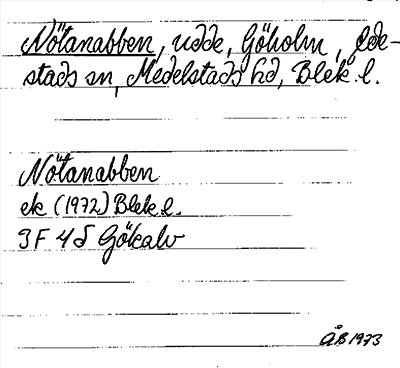 Nötanabben, udde, Göholm, Ede-
stads sn, Medelstads hd, Blek. l.
Nötanabben
ek (1972) Blek. l.
3F 4d Gökalv
ÅB 1973